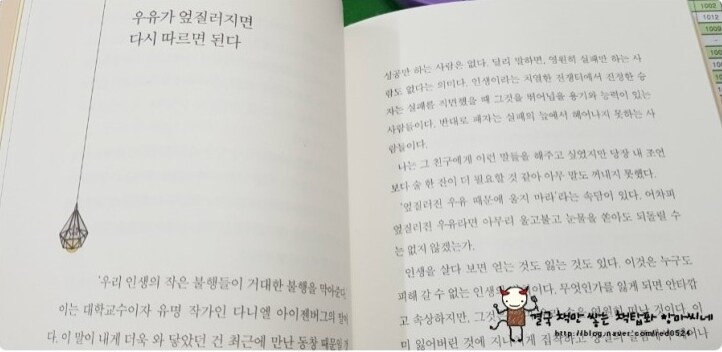 우유가 엎질러지면
다시 따르면 된다
'우리 인생의 작은 불행들이 거대한 불행을 막아준다.'
이는 대학교수이자 유명 작가인 다니엘 아이젠버그의 말이
다. 이 말이 내게 더욱 와 닿았던 건 최근에 만난 동창 때문일 것
성공만 하는 사람은 없다. 달리 말하면, 영원히 실패만 하는 사
람도 없다는 의미다. 인생이라는 치열한 전쟁터에서 진정한 승
자는 실패를 직면했을 때 그것을 뛰어넘을 용기와 능력이 있는
사람들이다. 반대로 패자는 실패의 늪에서 헤어나지 못하는 사
람들이다.
나는 그 친구에게 이런 말들을 해주고 싶었지만 당장 내 조언
보다 술 한 잔이 더 필요할 것 같아 아무 말도 꺼내지 못했다.
'엎질러진 우유 때문에 울지 마라'라는 속담이 있다. 어차피
엎질러진 우유라면 아무리 울고불고 눈물을 쏟아도 되돌릴 수
는 없지 않겠는가.
인생을 살다 보면 얻는 것도 잃는 것도 있다. 이것은 누구도
피해 갈 수 없는 인생의 이다. 무엇인가를 잃게 되면 안타깝
고 속상하지만, 그것은 영원히 떠난 것이다. 이
미 잃어버린 것에 지나치게 집착하고
1002
1009
결국 책만 쌓는 책탑파 양파씨네
http://blog.naver.com/red0524